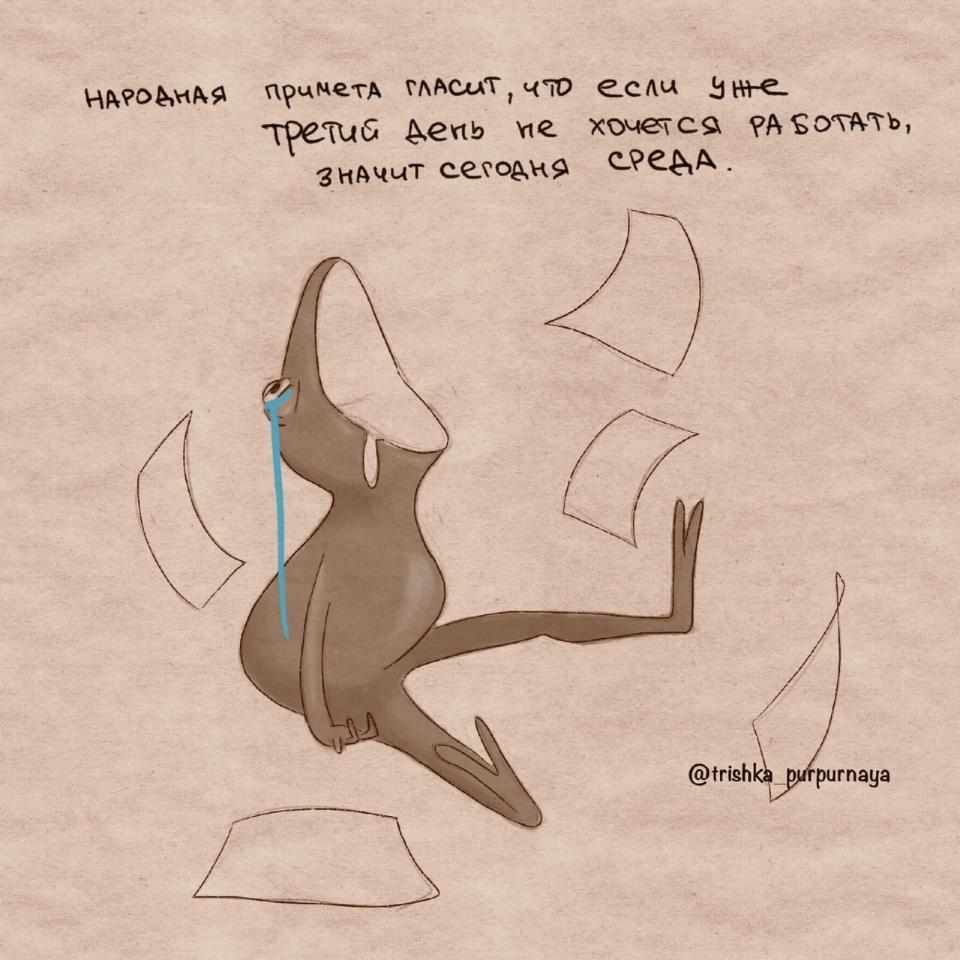 НАРОДНАЯ ПРИМЕТА ГЛАСИТ, ЧТО ЕСЛИ УЖЕ
ТРЕТИЙ ДЕНЬ НЕ ХОЧЕТСЯ РАБОТАТЬ,
ЗНАЧИТ СЕГОДНЯ СРЕДА.
@trishka_purpurnaya